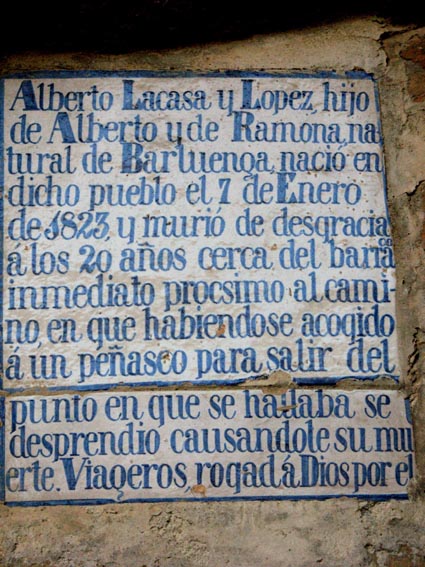 Alberto Lacasa y Lopez, hijo
de Alberto y de Ramona, na
tural de Barluenga, nació en
dicho pueblo el 7 de Enero
de 1823, y murió de desgracia
á los 20 años cerca del barra.co
inmediato procsimo al cami
no, en que habiendose acogido
á un peñasco para salir del
punto en que se hallaba se
desprendio causandole su mu
erte. Viageros, rogad á Dios por el